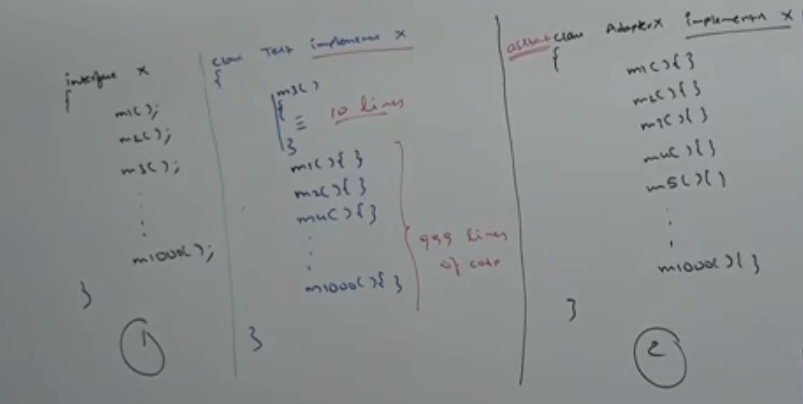 interface X
{
m1();
m2();
m3();
.
:
m1000();
}
1
class Test implements X
{
m3()
{
≡ 10 lines
}
m1(){ }
m2(){ }
m4(){ }
:
:
m1000(){ }
999 lines
of code
}
class AdapterX implements X
{
m1(){ }
m2(){ }
m3(){ }
m4(){ }
m5(){ }
.
:
m1000(){ }
}
2